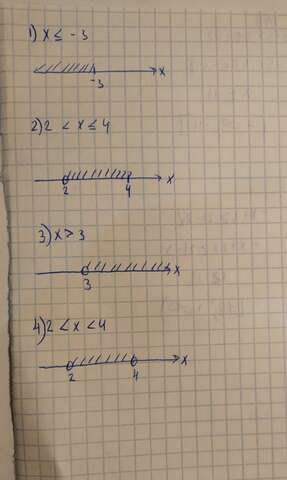 1) x ≤ -3
x
-3
2) 2 < x ≤ 4
x
2 4
3) x > 3
x
3
4) 2 < x < 4
x
2 4